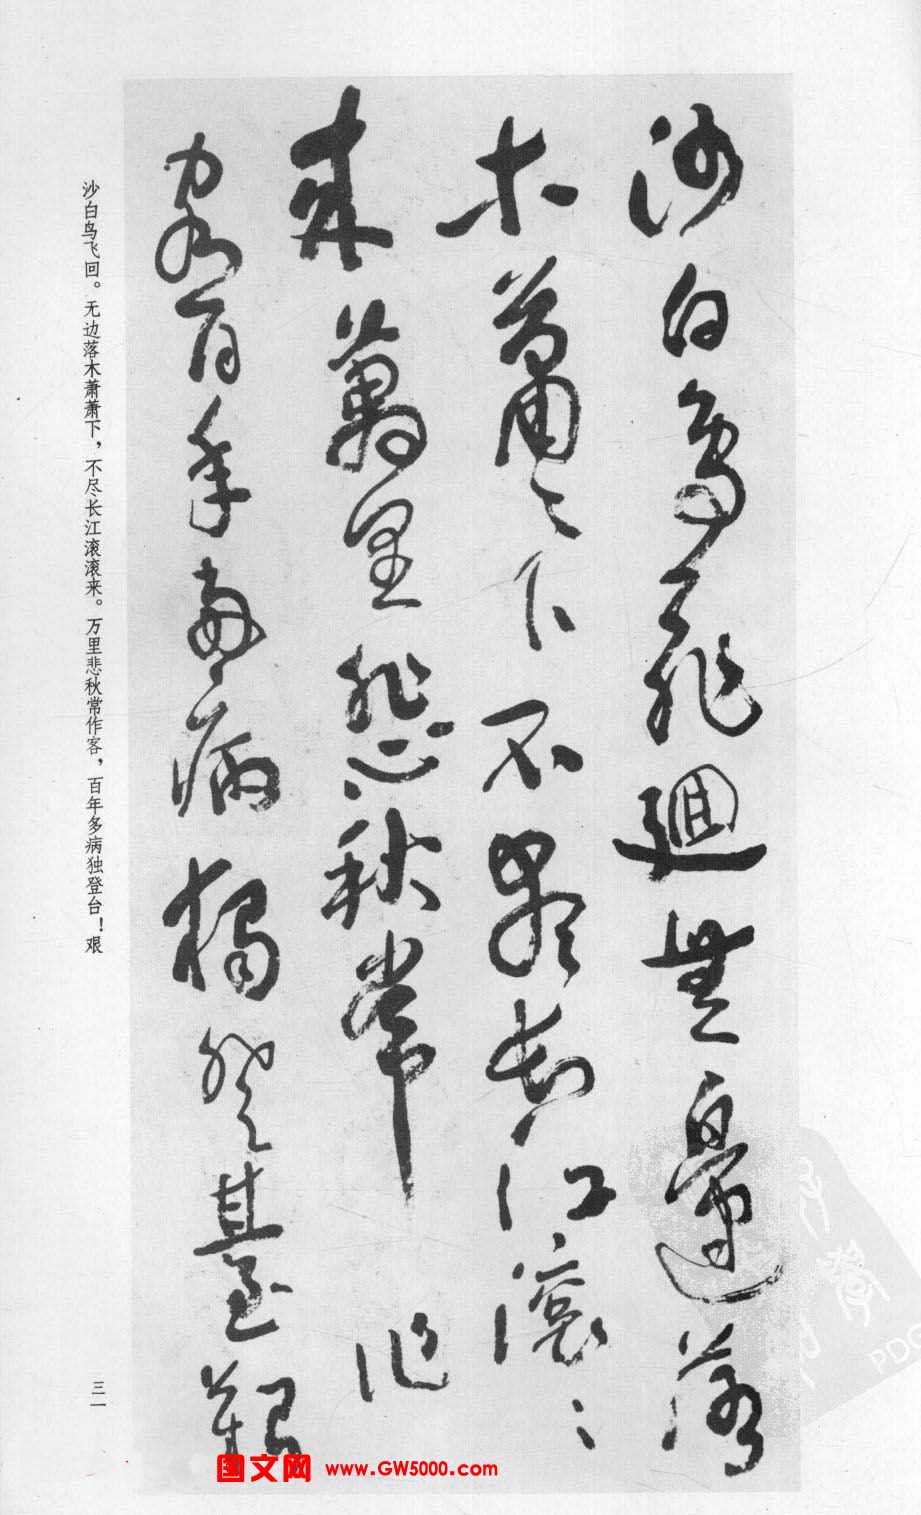 沙白鳥飛迴無邊落
木蕭〻下不盡長江滾〻
来萬里悲秋常作
客百年多病獨登臺艱
沙白鸟飞回。无边落木萧萧下，不尽长江滚滚来。万里悲秋常作客，百年多病独登台！艰
三一
国文网 www.GW5000.com